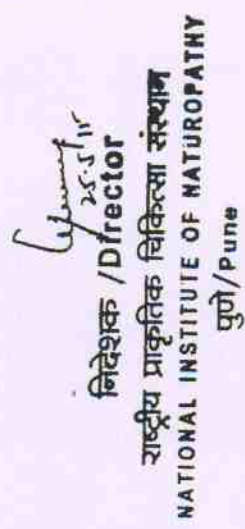 25.5.15
निदेशक /Director
राष्ट्रीय प्राकृतिक चिकित्सा संस्थान
NATIONAL INSTITUTE OF NATUROPATHY
पुणे/Pune